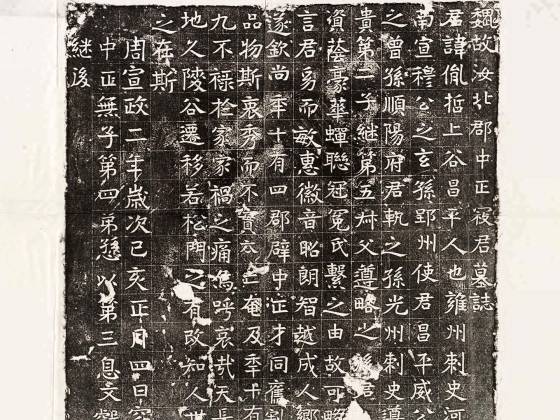 魏故汝北郡中正寇君墓誌
君諱胤哲上谷昌平人也雍州刺史河
南宣穆公之玄孫郢州使君昌平威公
之曾孫順陽府君軌之孫光州刺史遵
貴第二子継第五叔父遵略之孫君
資蔭豪華蟬聯冠冕氏繫之由故可略
言君幼而敏惠徽音昭朗智越成人鄉
遂欽尚年十有四郡辟中正才同舊
品物斯哀秀而不實奄及年千有
九不祿於家家禍之痛嗚呼哀哉天長
地久陵谷遷移若松門之有改知人世
之在斯
周宣政二年歲次己亥正月四日窆
中正無子第四弟慈以第三息文叡
継後